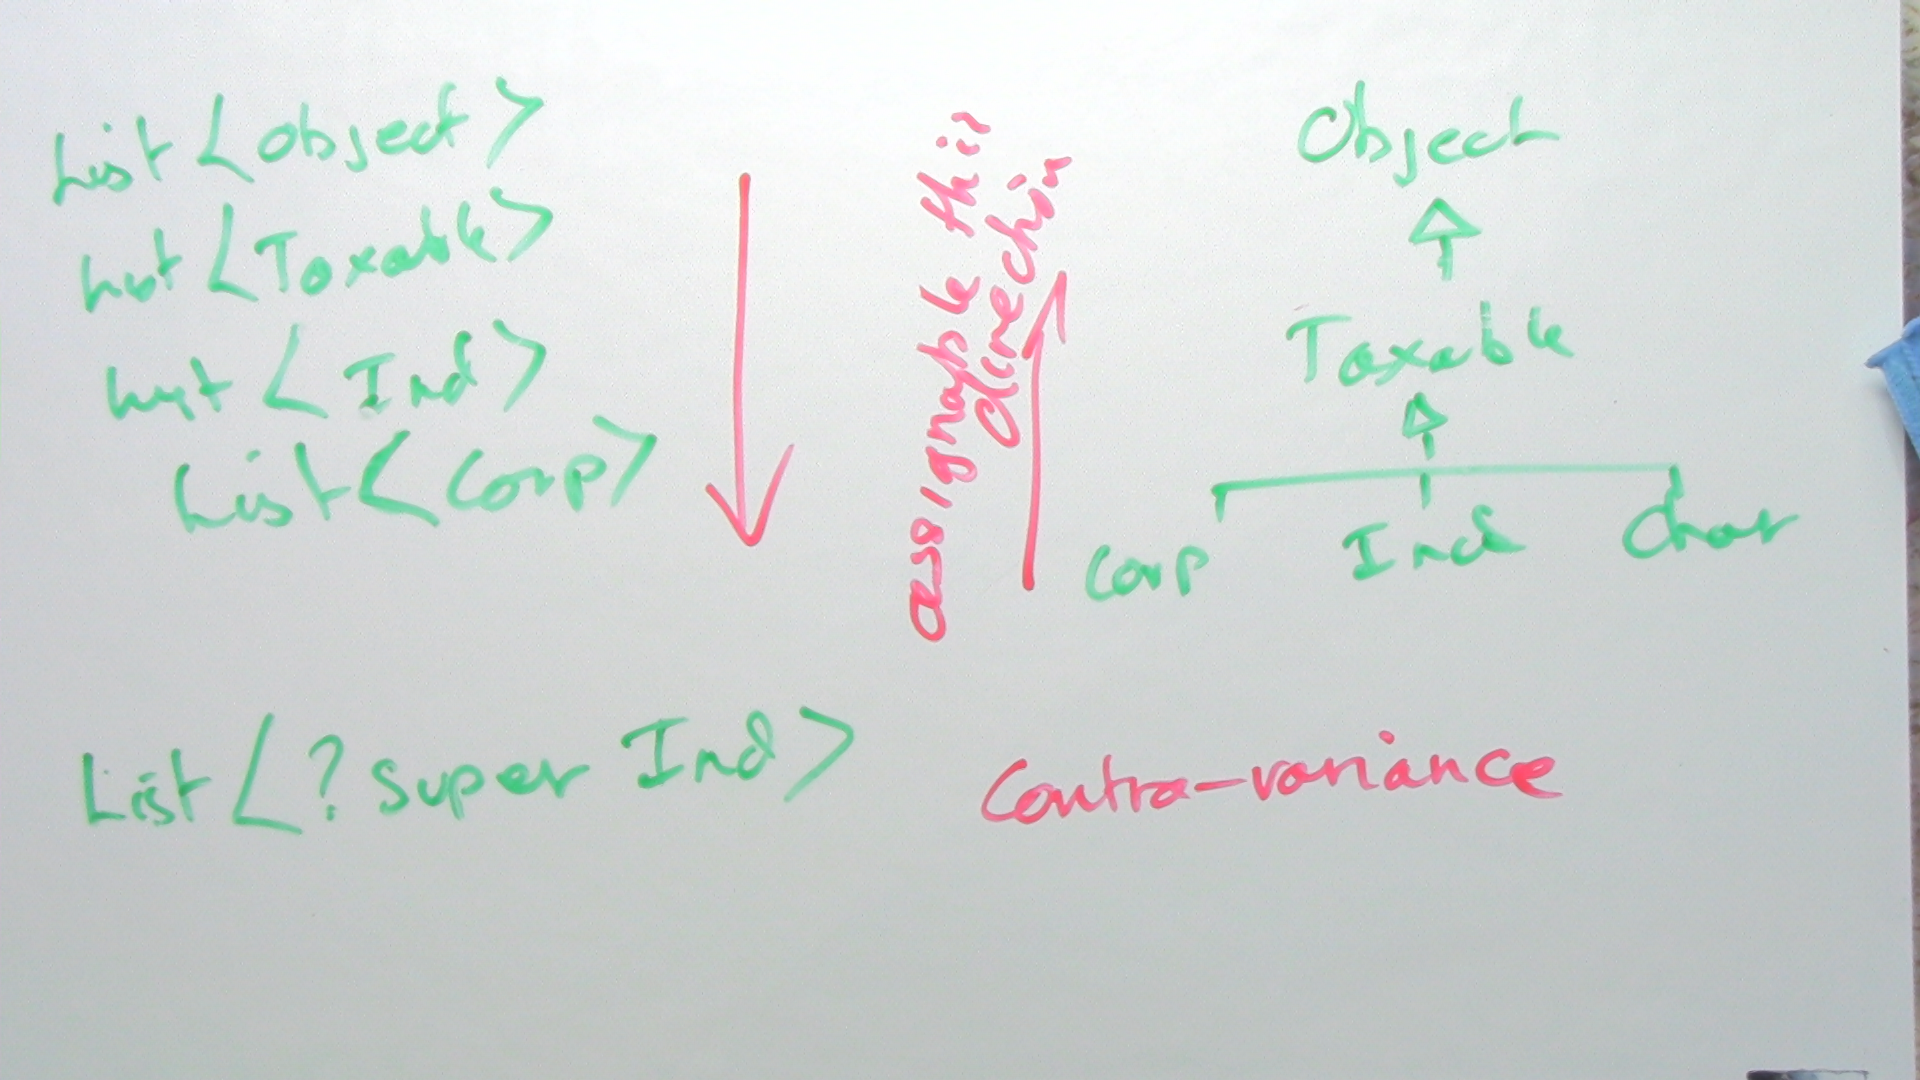 List <Object>
List <Taxable>
List <Ind>
List <Corp>
assignable this
direction
Object
Taxable
Corp Ind Char
List <? super Ind>
Contra-variance